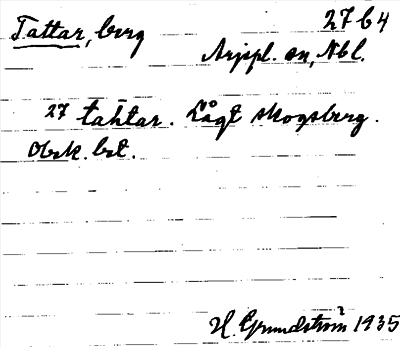 Tattar, berg
27 b 4
Arjepl. sn, Nbl.
27 tahtar. Lågt skogsberg.
Obek. bet.
H. Grundström 1935